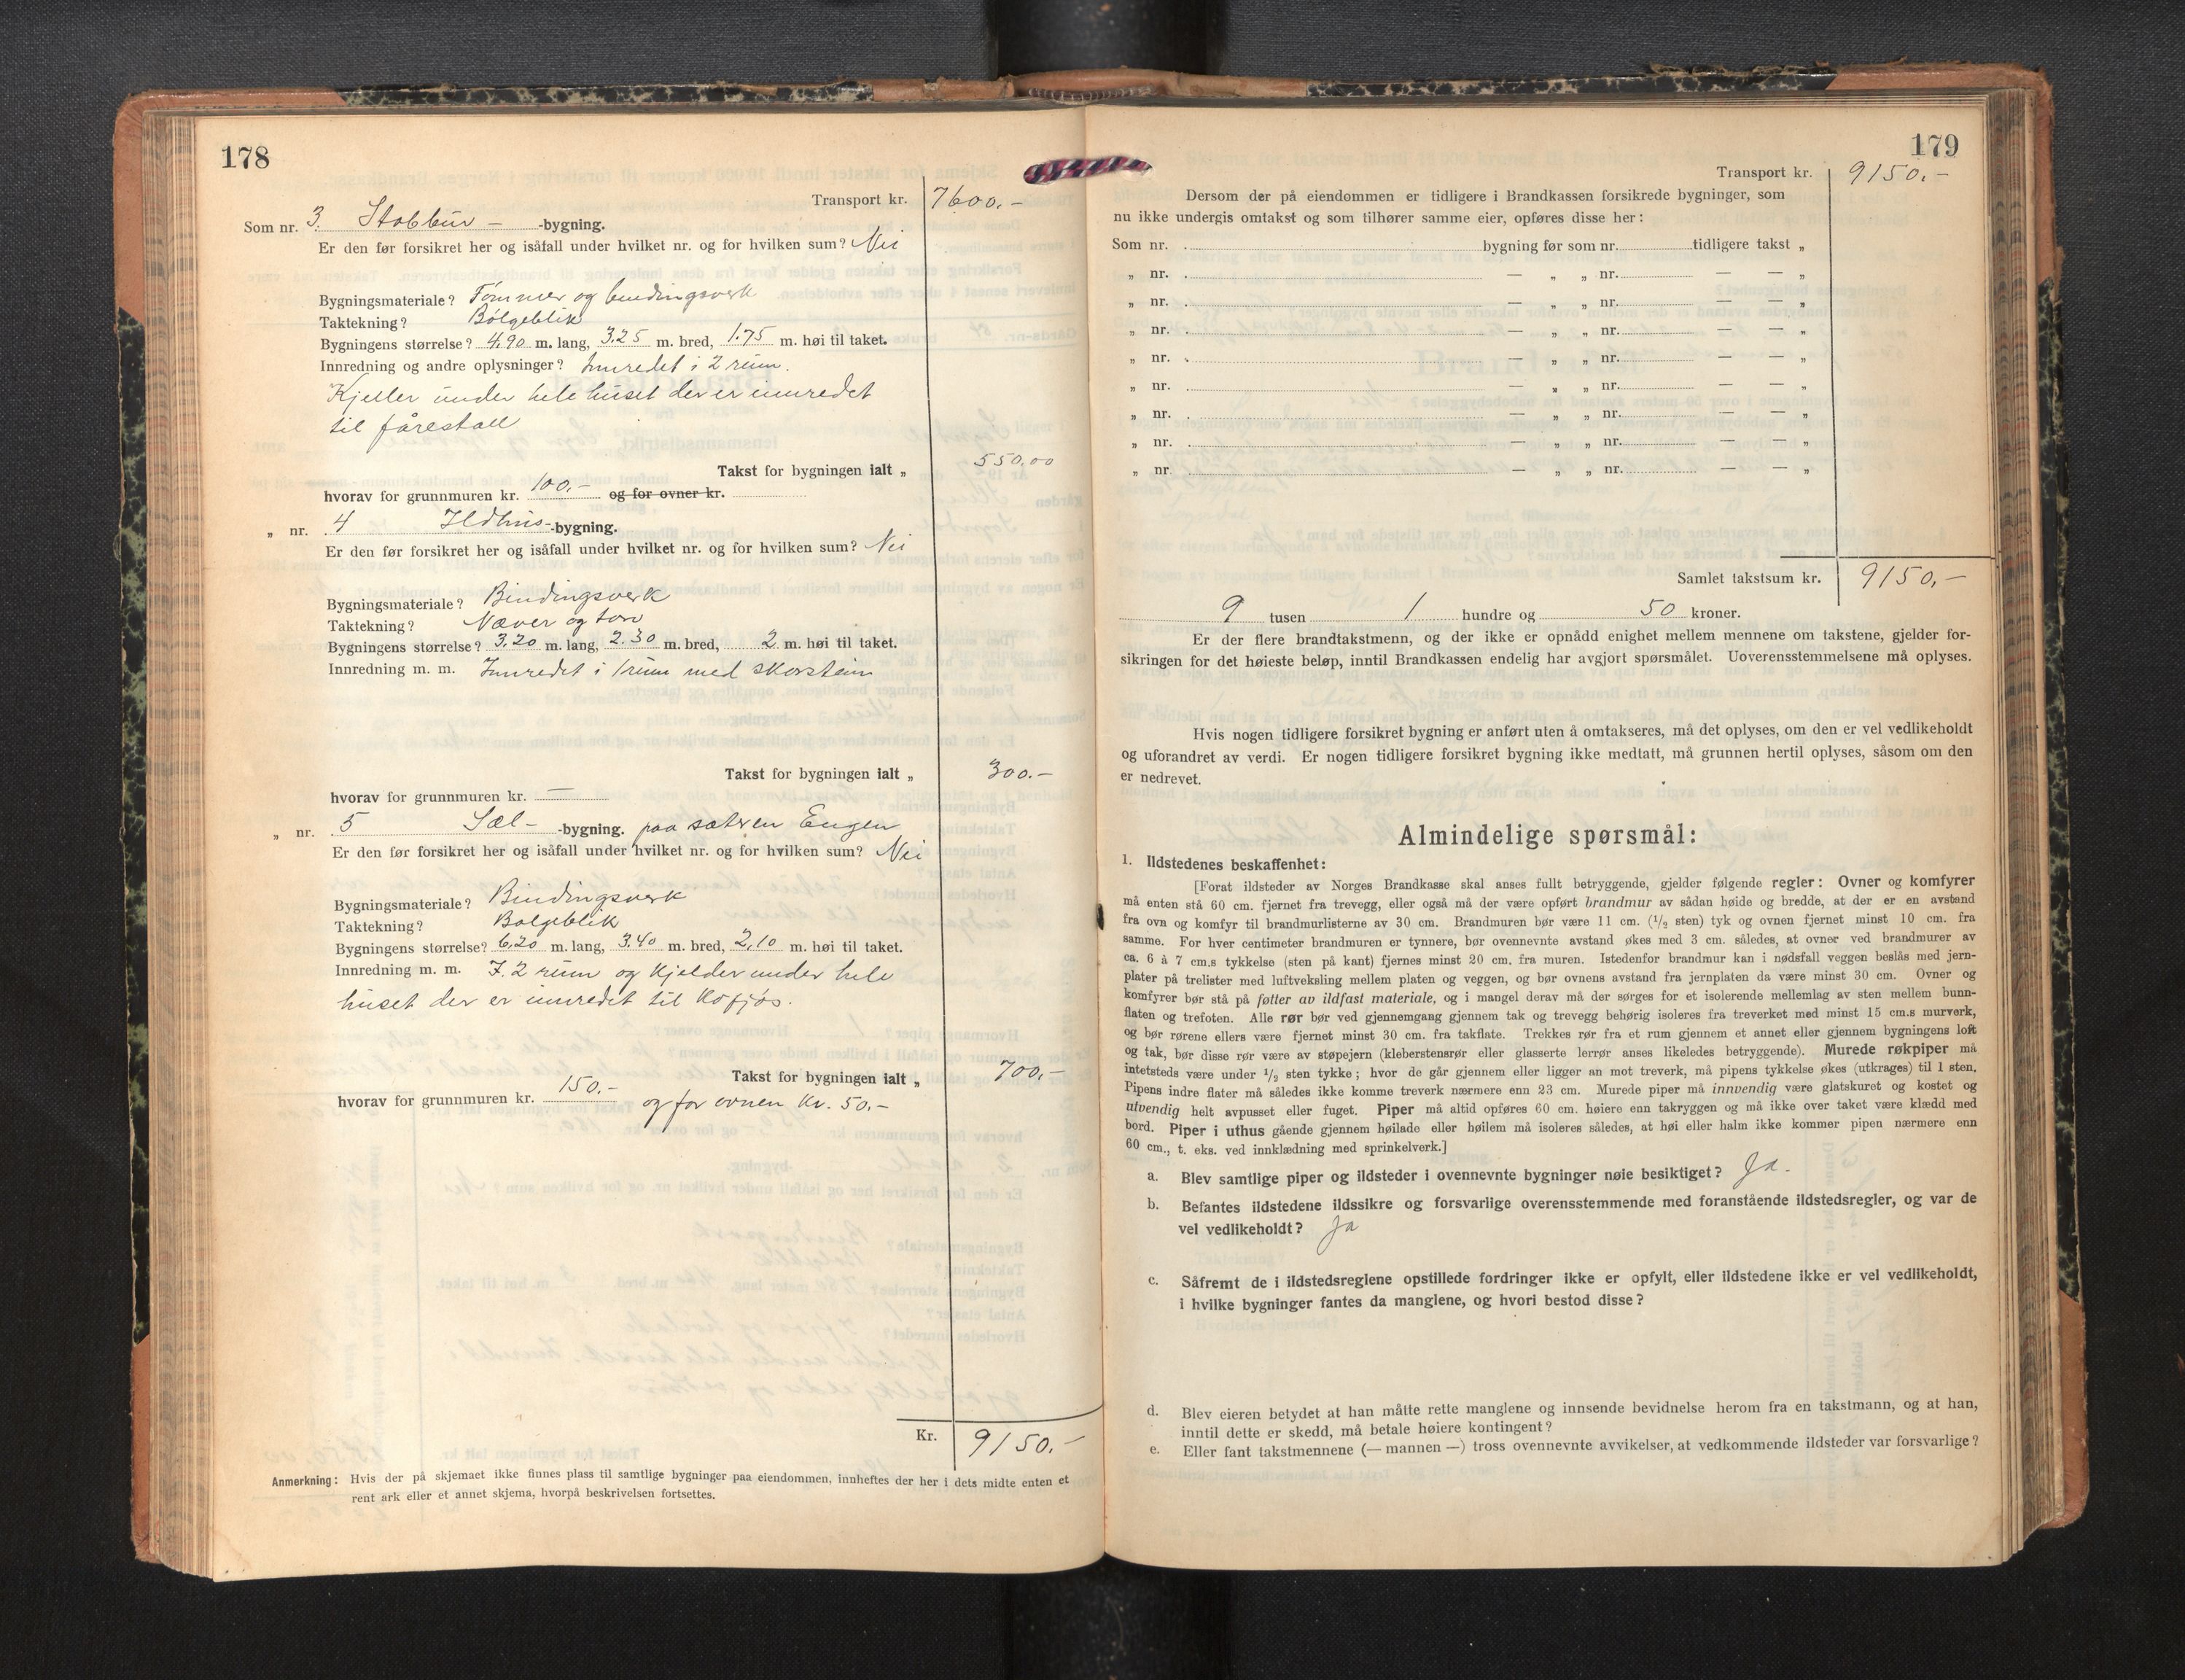 178
Transport kr. 7600.-
Som nr. 3. Stabbur - -bygning.
Er den før forsikret her og isåfall under hvilket nr. og for hvilken sum? Nei
Bygningsmateriale? Tømmer og bindingsverk
Taktekning? Bølgeblik
Bygningens størrelse? 4.90 m. lang, 3.25 m. bred, 1.75 m. høi til taket.
Innredning og andre oplysninger? Innredet i 2 rum.
Kjeller under hele huset der er innredet
til fårestall
Takst for bygningen ialt „ 550,00
hvorav for grunnmuren kr. 100.- og for ovner kr.
„ nr. 4 Ildhus- -bygning.
Er den før forsikret her og isåfall under hvilket nr. og for hvilken sum? Nei
Bygningsmateriale? Bindingsverk
Taktekning? Næver og torv
Bygningens størrelse? 3.20 m. lang, 2.30 m. bred, 2 m. høi til taket.
Innredning m. m. Innredet i 1 rum med skorstein
Takst for bygningen ialt „ 300.-
hvorav for grunnmuren kr. —
„ nr. 5 Sæl- -bygning. paa sætren Eugen
Er den før forsikret her og isåfall under hvilket nr. og for hvilken sum? Nei
Bygningsmateriale? Bindingsverk
Taktekning? Bølgeblik
Bygningens størrelse? 6.20 m. lang, 3.40 m. bred, 2,10 m. høi til taket.
Innredning m. m. I. 2 rum og kjelder under hele
huset der er innredet til kofjøs.
Takst for bygningen ialt „ 700.-
hvorav for grunnmuren kr. 150.- og for ovnen Kr. 50.-
Kr. 9150.-
Anmerkning: Hvis der på skjemaet ikke finnes plass til samtlige bygninger paa eiendommen, innheftes der her i dets midte enten et
rent ark eller et annet skjema, hvorpå beskrivelsen fortsettes.
179
Transport kr. 9150.-
Dersom der på eiendommen er tidligere i Brandkassen forsikrede bygninger, som
nu ikke undergis omtakst og som tilhører samme eier, opføres disse her:
Som nr. bygning før som nr. tidligere takst „
„ nr. — „ „ nr. — — „
„ nr. — „ „ nr. — — „
„ nr. — „ „ nr. — — „
„ nr. — „ „ nr. — — „
„ nr. — „ „ nr. — — „
„ nr. — „ „ nr. — — „
„ nr. — „ „ nr. — — „
„ nr. — „ „ nr. — — „
Samlet takstsum kr. 9150.-
9 tusen 1 hundre og 50 kroner.
Er der flere brandtakstmenn, og der ikke er opnådd enighet mellem mennene om takstene, gjelder for-
sikringen for det høieste beløp, inntil Brandkassen endelig har avgjort spørsmålet. Uoverensstemmelsene må oplyses.
Hvis nogen tidligere forsikret bygning er anført uten å omtakseres, må det oplyses, om den er vel vedlikeholdt
og uforandret av verdi. Er nogen tidligere forsikret bygning ikke medtatt, må grunnen hertil oplyses, såsom om den
er nedrevet.
Almindelige spørsmål:
1. Ildstedenes beskaffenhet:
[Forat ildsteder av Norges Brandkasse skal anses fullt betryggende, gjelder følgende regler: Ovner og komfyrer
må enten stå 60 cm. fjernet fra trevegg, eller også må der være opført brandmur av sådan høide og bredde, at der er en avstand
fra ovn og komfyr til brandmurlisterne av 30 cm. Brandmuren bør være 11 cm. (1/2 sten) tyk og ovnen fjernet minst 10 cm. fra
samme. For hver centimeter brandmuren er tynnere, bør ovennevnte avstand økes med 3 cm. således, at ovner ved brandmurer av
ca. 6 à 7 cm.s tykkelse (sten på kant) fjernes minst 20 cm. fra muren. Istedenfor brandmur kan i nødsfall veggen beslås med jern-
plater på trelister med luftveksling mellem platen og veggen, og bør ovnens avstand fra jernplaten da være minst 30 cm. Ovner og
komfyrer bør stå på føtter av ildfast materiale, og i mangel derav må der sørges for et isolerende mellemlag av sten mellem bunn-
flaten og trefoten. Alle rør bør ved gjennemgang gjennem tak og trevegg behørig isoleres fra treverket med minst 15 cm.s murverk,
og bør rørene ellers være fjernet minst 30 cm. fra takflate. Trekkes rør fra et rum gjennem et annet eller gjennem bygningens loft
og tak, bør disse rør være av støpejern (kleberstensrør eller glasserte lerrør anses likeledes betryggende). Murede røkpiper må
intetsteds være under 1/2 sten tykke; hvor de går gjennem eller ligger an mot treverk, må pipens tykkelse økes (utkrages) til 1 sten.
Pipens indre flater må således ikke komme treverk nærmere enn 23 cm. Murede piper må innvendig være glatskuret og kostet og
utvendig helt avpusset eller fuget. Piper må altid opføres 60 cm. høiere enn takryggen og må ikke over taket være klædd med
bord. Piper i uthus gående gjennem høilade eller høilem må isoleres således, at høi eller halm ikke kommer pipen nærmere enn
60 cm., t. eks. ved innklædning med sprinkelverk.]
a. Blev samtlige piper og ildsteder i ovennevnte bygninger nøie besiktiget? Ja.
b. Befantes ildstedene ildssikre og forsvarlige overensstemmende med foranstående ildstedsregler, og var de
vel vedlikeholdt? Ja
c. Såfremt de i ildstedsreglene opstillede fordringer ikke er opfylt, eller ildstedene ikke er vel vedlikeholdt,
i hvilke bygninger fantes da manglene, og hvori bestod disse?
d. Blev eieren betydet at han måtte rette manglene og innsende bevidnelse herom fra en takstmann, og at han,
inntil dette er skedd, må betale høiere kontingent?
e. Eller fant takstmennene (— mannen —) tross ovennevnte avvikelser, at vedkommende ildsteder var forsvarlige?